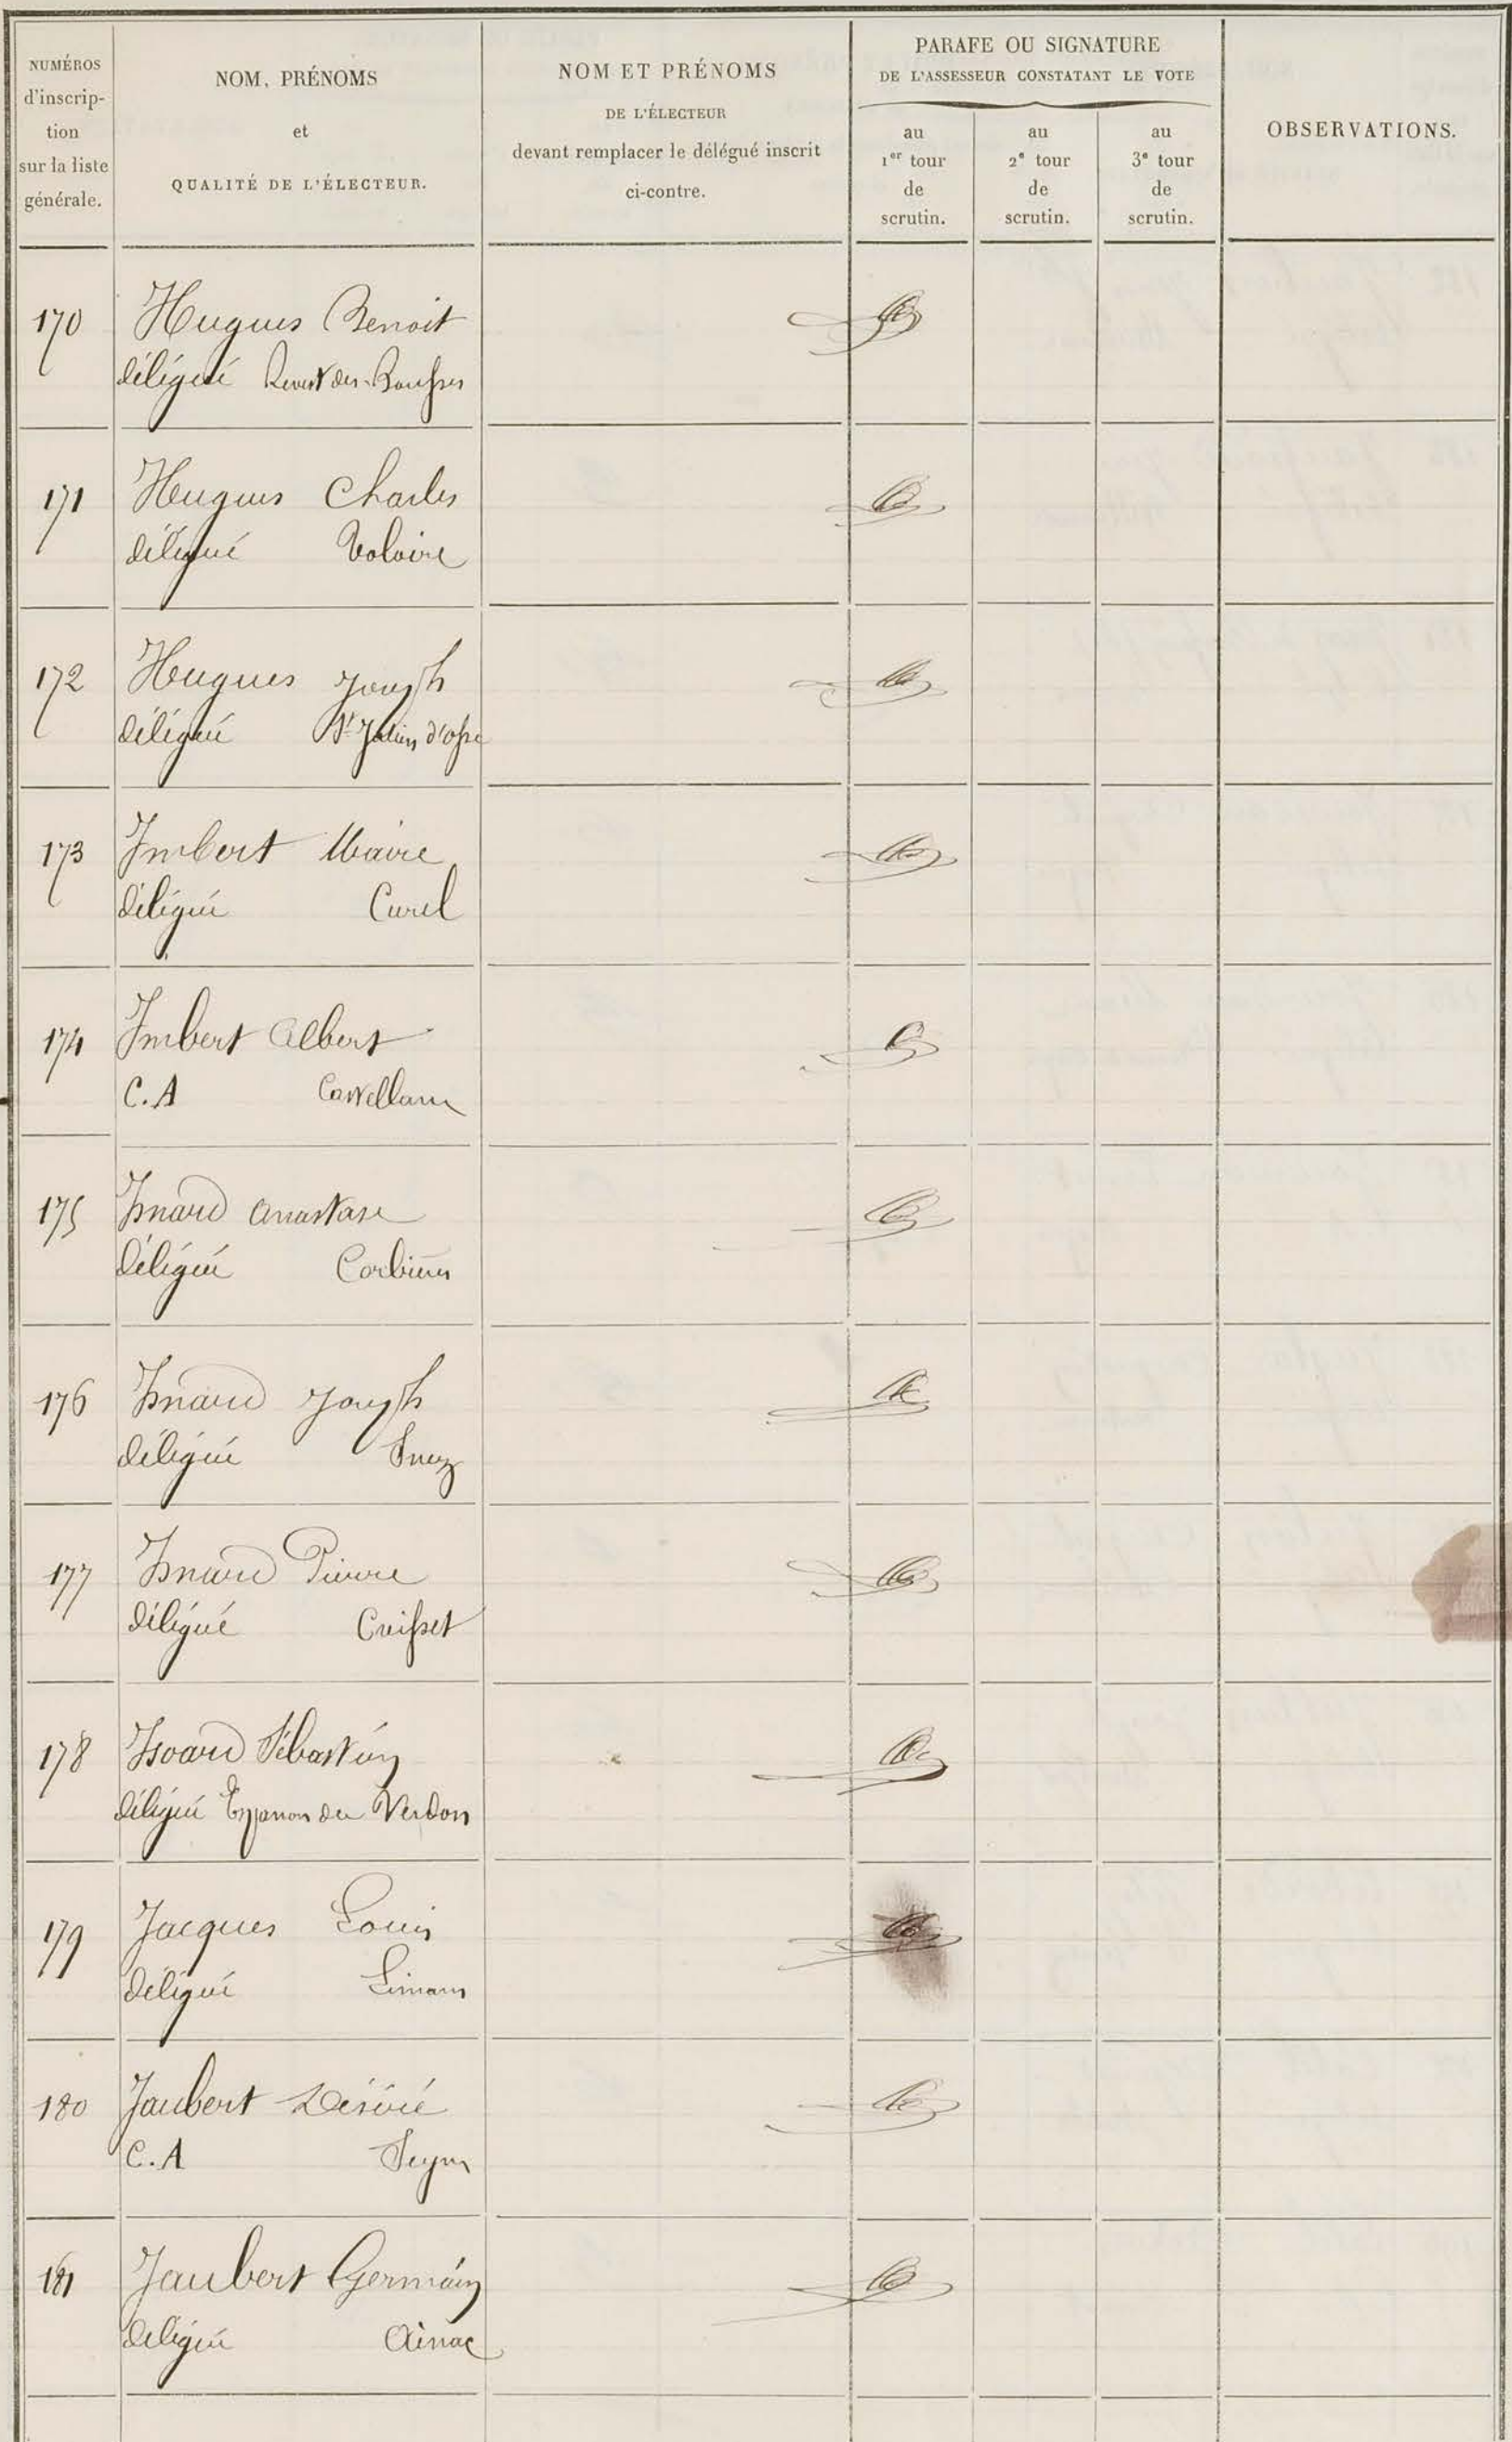 NUMÉROS
d'inscrip-
tion
sur la liste
générale.
NOM, PRÉNOMS
et
QUALITÉ DE L'ÉLECTEUR.
NOM ET PRÉNOMS
DE L'ÉLECTEUR
devant remplacer le délégué inscrit
ci-contre.
PARAFE OU SIGNATURE
DE L'ASSESSEUR CONSTATANT LE VOTE
au
1er tour
de
scrutin.
au
2e tour
de
scrutin.
au
3e tour
de
scrutin.
OBSERVATIONS.
170 Hugues Benoit
délégué Revest des Brousses
171 Hugues Charles
délégué Volonne
172 Hugues Joseph
délégué St Julien d'Asse
173 Imbert Maire
délégué Curel
174 Imbert Albert
C.A Castellane
175 Isnard Anastase
délégué Corbières
176 Isnard Joseph
délégué
177 Isnard Pierre
délégué Creisset
178 Isoard Sébastien
délégué Esparron du Verdon
179 Jacques Louis
délégué Limans
180 Jaubert Désiré
C.A Seyne
181 Jaubert Germain
délégué Ainac